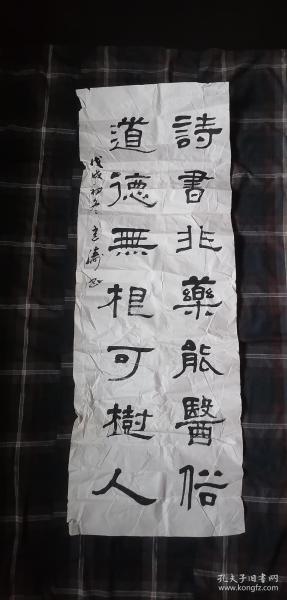 詩書非藥能醫俗
道德無根可樹人
戊戌初冬
孔夫子旧书网